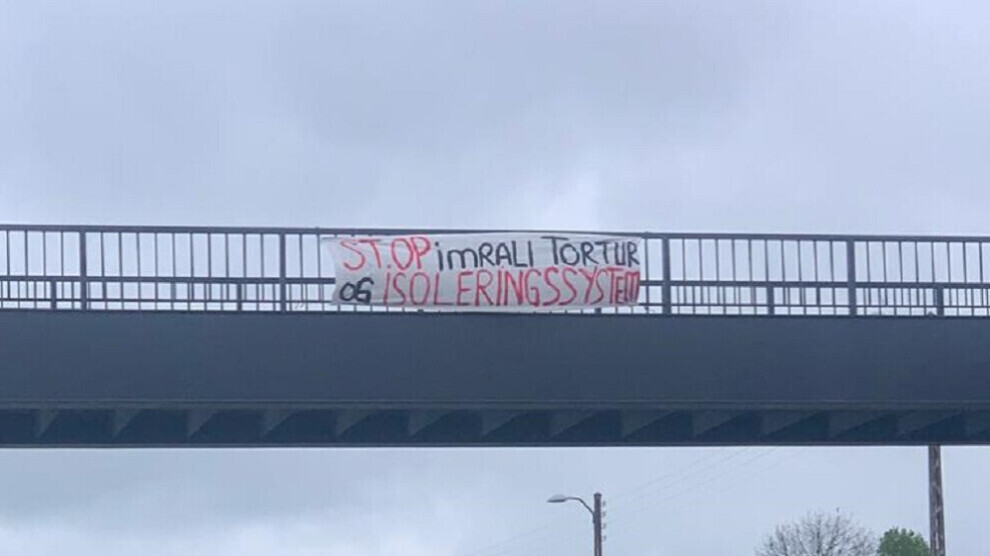 STOP imRALI TORTUR
OG ISOLERINGSSYSTEM